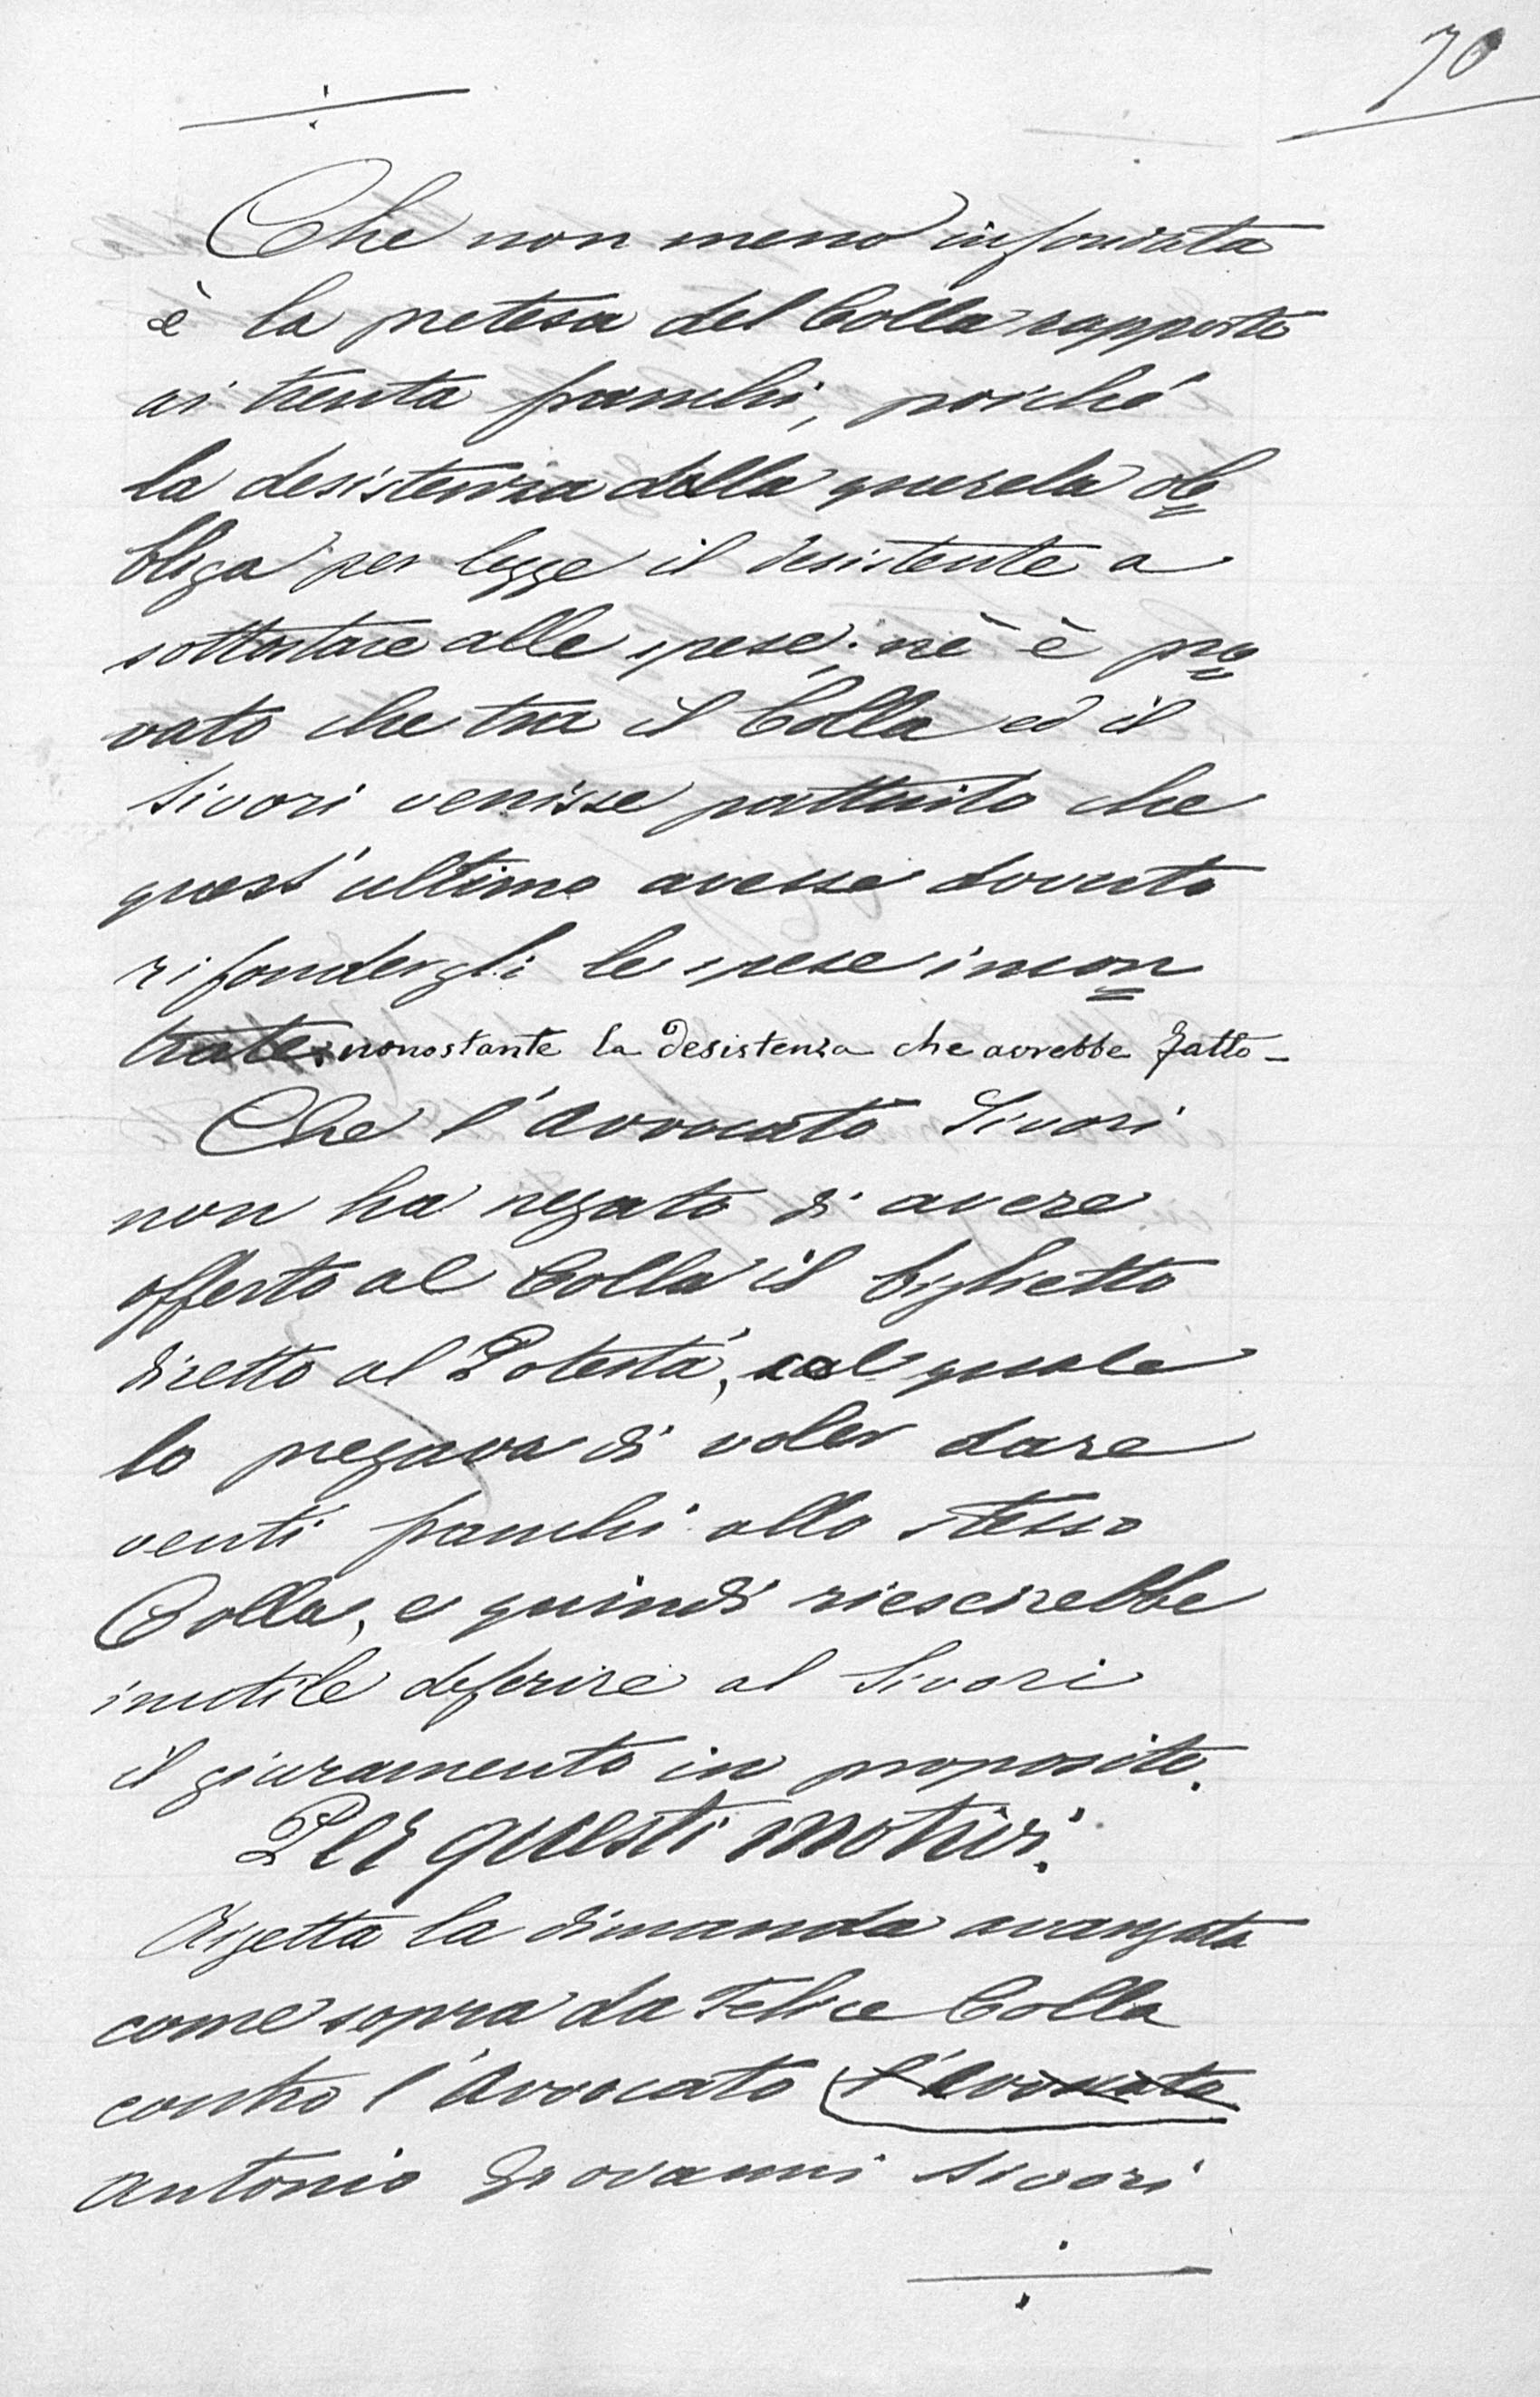 70
Che non meno infondata
è la pretesa del Colla rapporto
ai trenta franchi, poiché
la desistenza della querela ob
bliga per legge il desistente a
sottostare alle spese; nè è pro
vato che tra il Colla ed il
Sivori venisse pattuito che
quest'ultimo avesse dovuto
rifondergli le spese incon
trate nonostante la desistenza che avrebbe fatto -
Che l'Avvocato Sivori
non ha negato di avere
offerto al Colla il biglietto
diretto al Potestà, col quale
lo pregava di voler dare
venti franchi allo stesso
Colla, e quindi riescirebbe
inutile deferire al Sivori
il giuramento in proposito.
Per questi motivi.
Rigetta la dimanda avanzata
come sopra da Felice Colla
contro l'Avvocato l'Avvocato
Antonio Giovanni Sivori